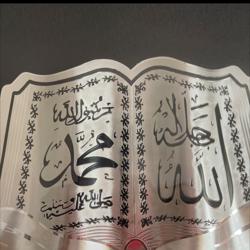 الله
جل جلاله
محمد
رسول الله
صلى الله عليه وسلم